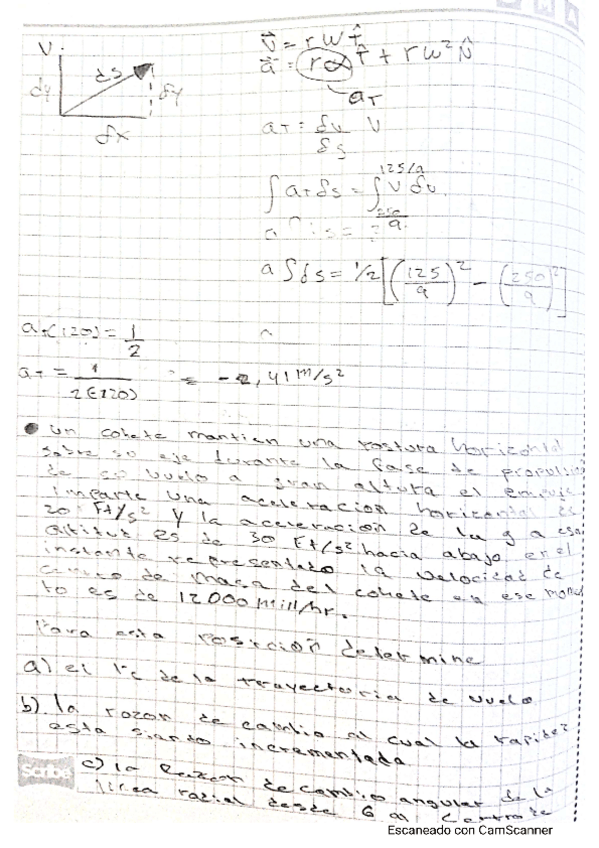 V
ds
dy
dy
dx
v⃗ = rω T̂
a⃗ = rα T̂ + rω² N̂
aT
aT = dv V
ds
125/9
∫ aT ds = ∫ V dv
a ∫ ds = 1/2 [(125/9)² − (250/9)²]
(120) = 1/2
aT = 1 = -2,41 m/s²
2(120)
● un cohete mantien una postura horizontal
sobre su eje durante la fase de
de su vuelo a gran altura el empuje
imparte una aceleracion horizontal de
20 Ft/s² y la aceleracion de la g a esa
altitud es de 30 Ft/s² hacia abajo, en el
instante representado la velocidad de
centro de masa del cohete en ese momen
to es de 12000 mill/hr.
Para esta posicion determine
a) el rc de la trayectoria de vuelo
b). la razon de cambio al cual la rapidez
esta siendo incrementada
c) la Razon de cambio angular de la
linea radial desde G al centro de
Escaneado con CamScanner